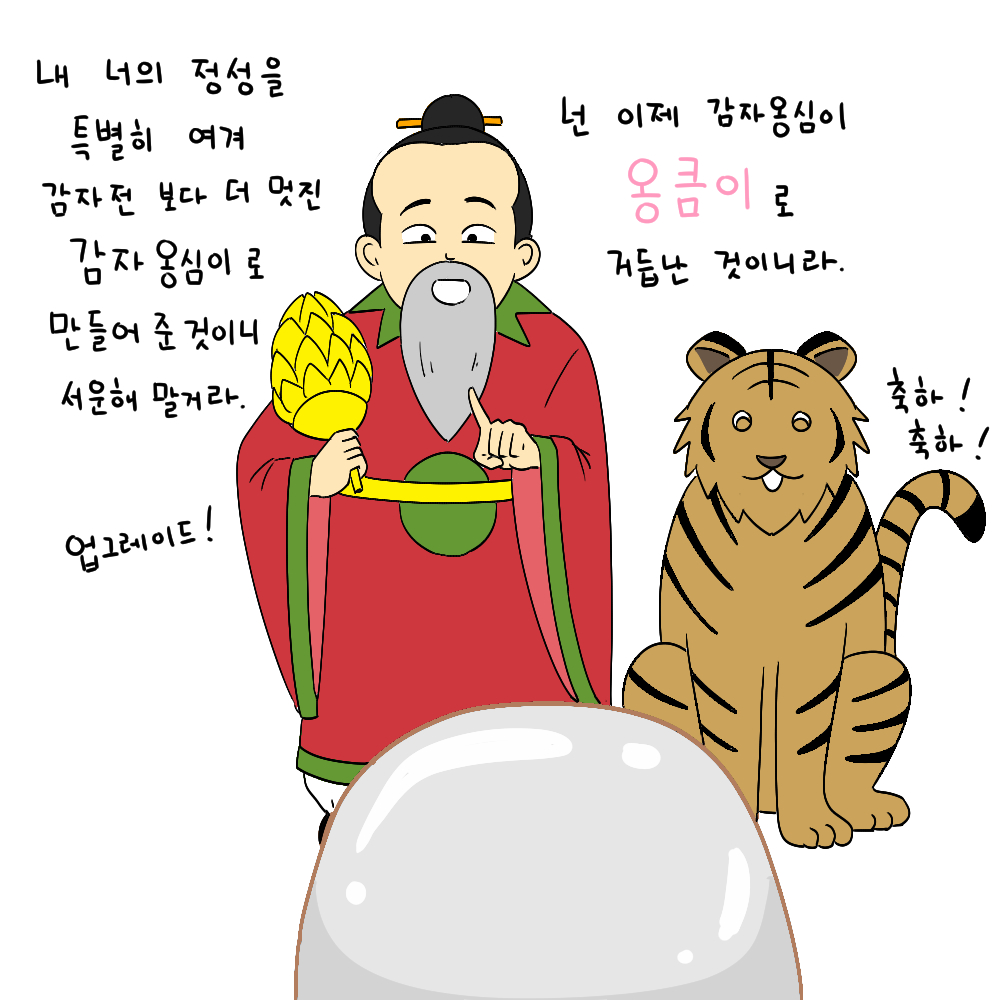 내 너의 정성을
특별히 여겨
감자전 보다 더 멋진
감자 옹심이로
만들어 준 것이니
서운해 말거라.
업그레이드!
넌 이제 감자옹심이
옹큼이로
거듭난 것이니라.
축하!
축하!